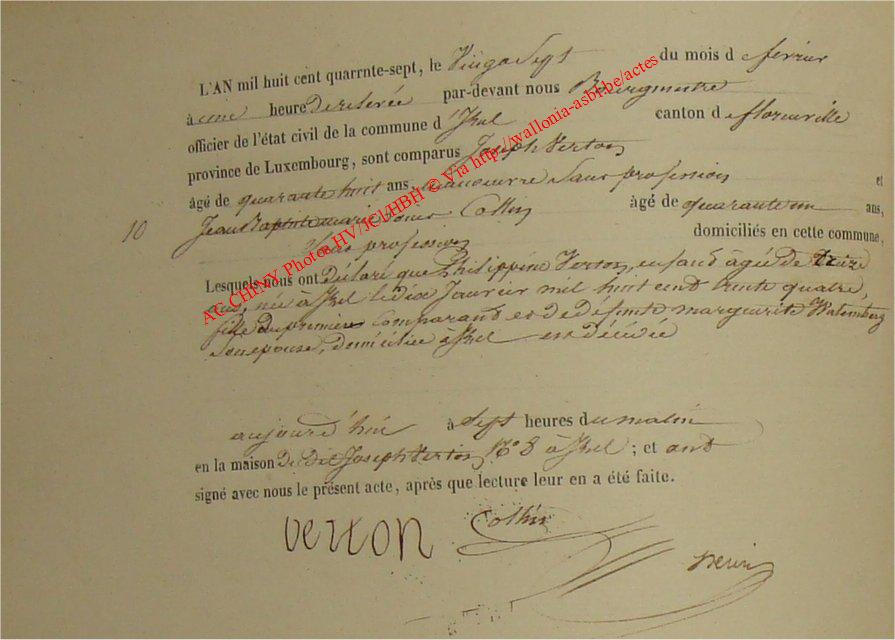 L'AN mil huit cent quarrnte-sept, le Vingt Sept du mois d e fevrier
à une heure De relevée par-devant nous Bourgmestre
officier de l'état civil de la commune d 'Izel canton d e florenville
province de Luxembourg, sont comparus Joseph Verton
âgé de quarante huit ans, manoeuvre Sans profession et
10 Jean Baptiste marie Collin âgé de quarante un ans,
Sans profession domiciliés en cette commune,
Lesquels nous ont Déclaré que Philippine Verton, enfand âgée de treize
ans, née à Izel le dix Janvier mil huit cent trente quatre,
fille du premier Comparant et de défunte marguerite Watemberg
Son epouse, domiciliée à Izel est décédée
aujourd'hui à Sept heures du matin
en la maison De dit Joseph Verton N° 8 à Izel ; et ont
signé avec nous le présent acte, après que lecture leur en a été faite.
verton Collin
AC CHINY Photos HV/JCL/HBH © Via http://wallonia-asbl.be/actes